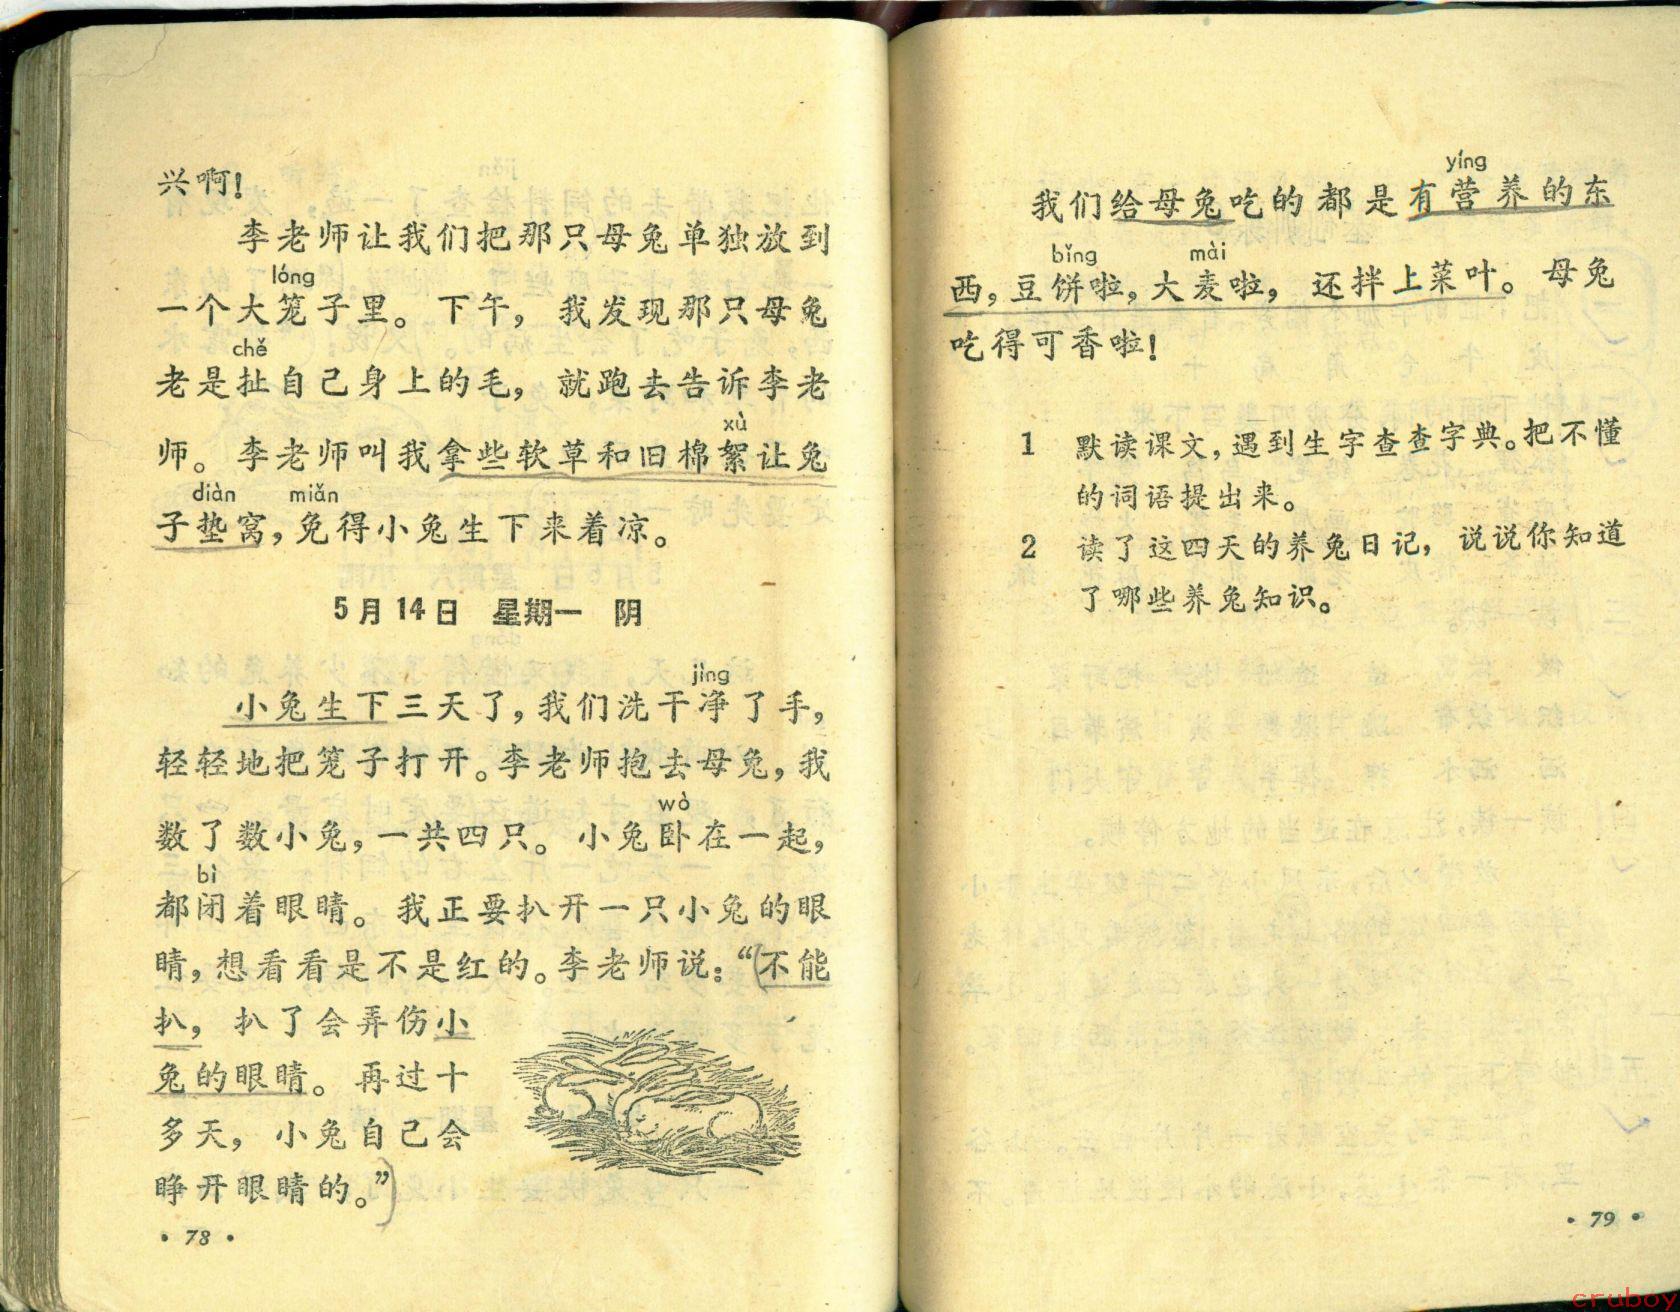 兴啊！
李老师让我们把那只母兔单独放到
lóng
一个大笼子里。下午，我发现那只母兔
chě
老是扯自己身上的毛，就跑去告诉李老
xù
师。李老师叫我拿些软草和旧棉絮让兔
diàn miǎn
子垫窝，免得小兔生下来着凉。
5月14日 星期一 阴
jìng
小兔生下三天了，我们洗干净了手，
轻轻地把笼子打开。李老师抱去母兔，我
wò
数了数小兔，一共四只。小兔卧在一起，
bì
都闭着眼睛。我正要扒开一只小兔的眼
睛，想看看是不是红的。李老师说：“不能
扒，扒了会弄伤小
兔的眼睛。再过十
多天，小兔自己会
睁开眼睛的。”
· 78 ·
yíng
我们给母兔吃的都是有营养的东
bǐng mài
西，豆饼啦，大麦啦，还拌上菜叶。母兔
吃得可香啦！
1 默读课文，遇到生字查查字典。把不懂
的词语提出来。
2 读了这四天的养兔日记，说说你知道
了哪些养兔知识。
· 79 ·
cruboy